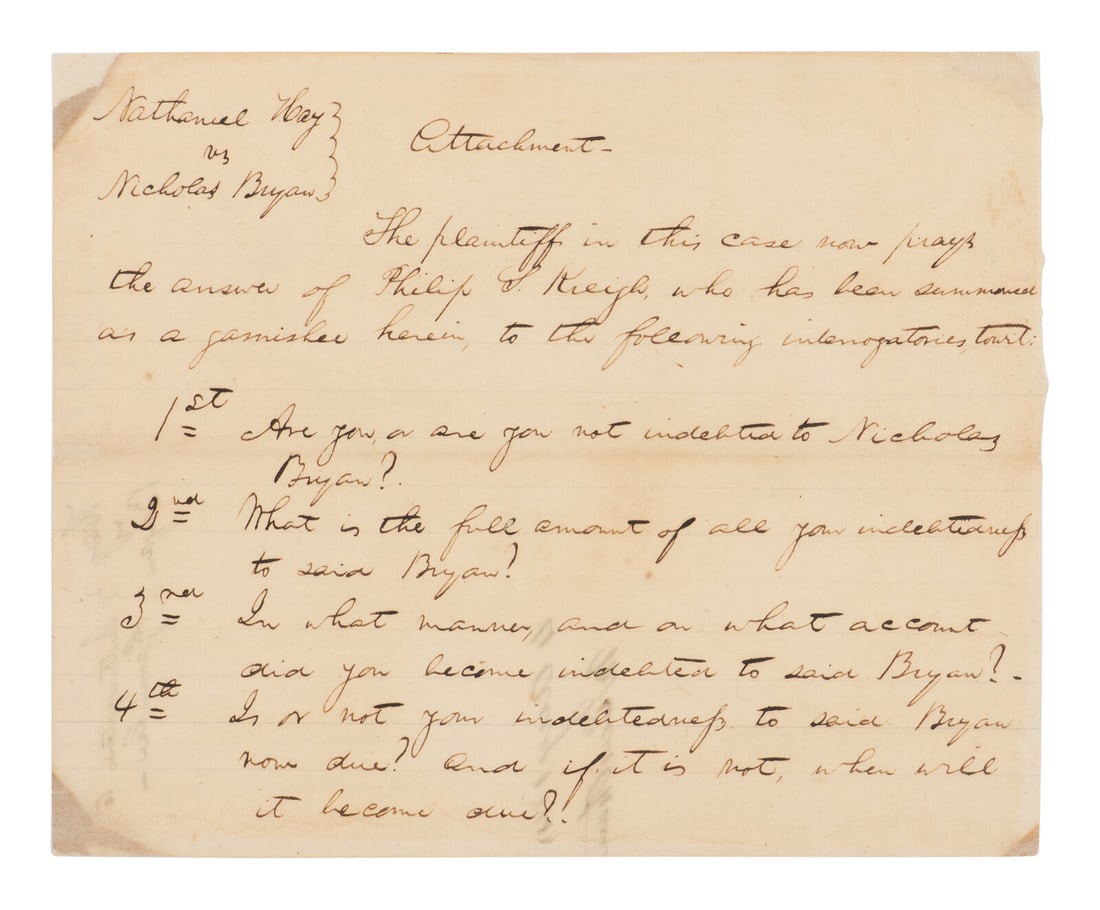 Nathaniel Hay
vs
Nicholas Bryan
Attachment-
The plaintiff in this case now prays
the answer of Philip S. Kreigh, who has been summoned
as a garnishee herein, to the following interrogatories, towit:
1st Are you, or are you not indebted to Nicholas
Bryan?
2nd What is the full amount of all your indebtedness
to said Bryan?
3rd In what manner, and on what account
did you become indebted to said Bryan?-
4th Is or not your indebtedness to said Bryan
now due? and if it is not, when will
it become due?